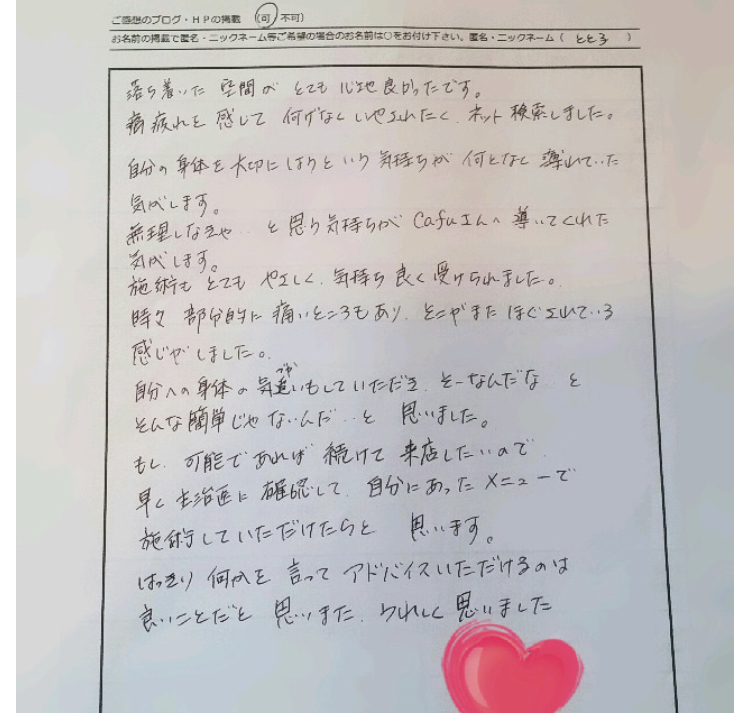 ご感想のブログ・HPの掲載 (可)不可)
お名前の掲載で匿名・ニックネーム等ご希望の場合のお名前は○をお付け下さい。匿名・ニックネーム( とと子 )
落ち着いた 空間が とても 心地良かったです。
痛疲れを 感じて 何げなく いやされたく、ネット検索しました。
自分の身体を大切にしようという 気持ちが 何となく 導いていた
気がします。
無理しなきゃ‥と思う気持ちが Cafuさんへ 導いてくれた
気がします。
施術も とても やさしく、気持ち良く受けられました。
時々 部分的に 痛いところもあり、そこがまた ほぐされている
感じが しました。
自分への身体の気遣いもしていただき、そーなんだな‥と
づか
そんな簡単じゃないんだ‥と 思いました。
もし、可能であれば 続けて 来店したいので
早く主治医に確認して、自分にあったメニューで
施術していただけたらと 思います。
はっきり 何かを 言って アドバイスいただけるのは
良いことだと 思いまた、うれしく思いました